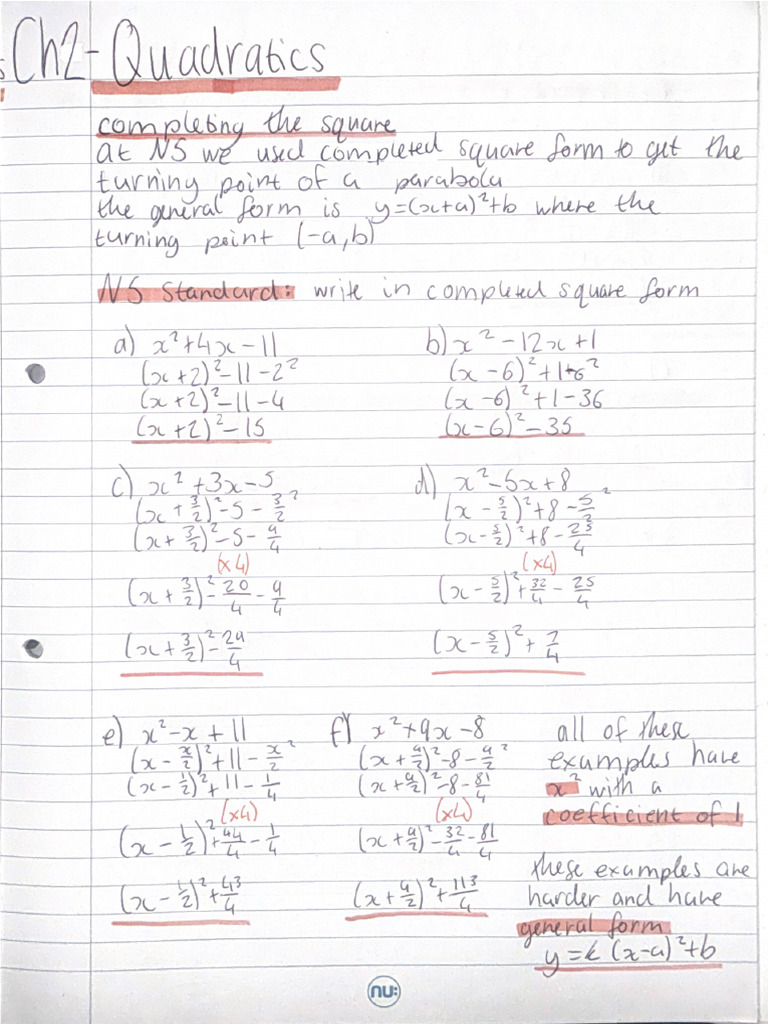 Ch2 - Quadratics
completing the square
at N5 we used completed square form to get the
turning point of a parabola
the general form is y=(x+a)²+b where the
turning point (-a,b)
N5 Standard: write in completed square form
a) x²+4x-11
(x+2)²-11-2²
(x+2)²-11-4
(x+2)²-15
b) x²-12x+1
(x-6)²+1-6²
(x-6)²+1-36
(x-6)²-35
c) x²+3x-5
(x+3/2)²-5-3/2²
(x+3/2)²-5-9/4
(x4)
(x+3/2)²-20/4-9/4
(x+3/2)²-29/4
d) x²-5x+8
(x-5/2)²+8-5/2²
(x-5/2)²+8-25/4
(x4)
(x-5/2)²+32/4-25/4
(x-5/2)²+7/4
e) x²-x+11
(x-x/2)²+11-x/2²
(x-1/2)²+11-1/4
(x4)
(x-1/2)²+44/4-1/4
(x-1/2)²+43/4
f) x²+9x-8
(x+9/2)²-8-9/2²
(x+9/2)²-8-81/4
(x4)
(x+9/2)²-32/4-81/4
(x+9/2)²+113/4
all of these
examples have
x² with a
coefficient of 1
these examples are
harder and have
general form
y=k(x-a)²+b
nu: